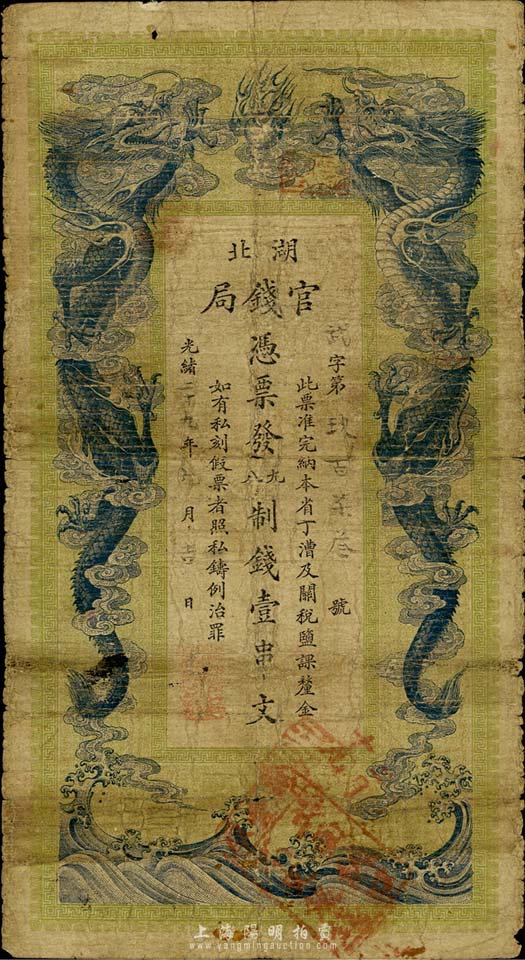 湖北
官錢局
字第玖百柒叁號
此票准完納本省丁漕及關稅鹽課釐金
憑票發九八制錢壹串文
如有私刻假票者照私鑄例治罪
光緒二十九年 月吉日
上海陽明拍賣
www.yangmingauction.com